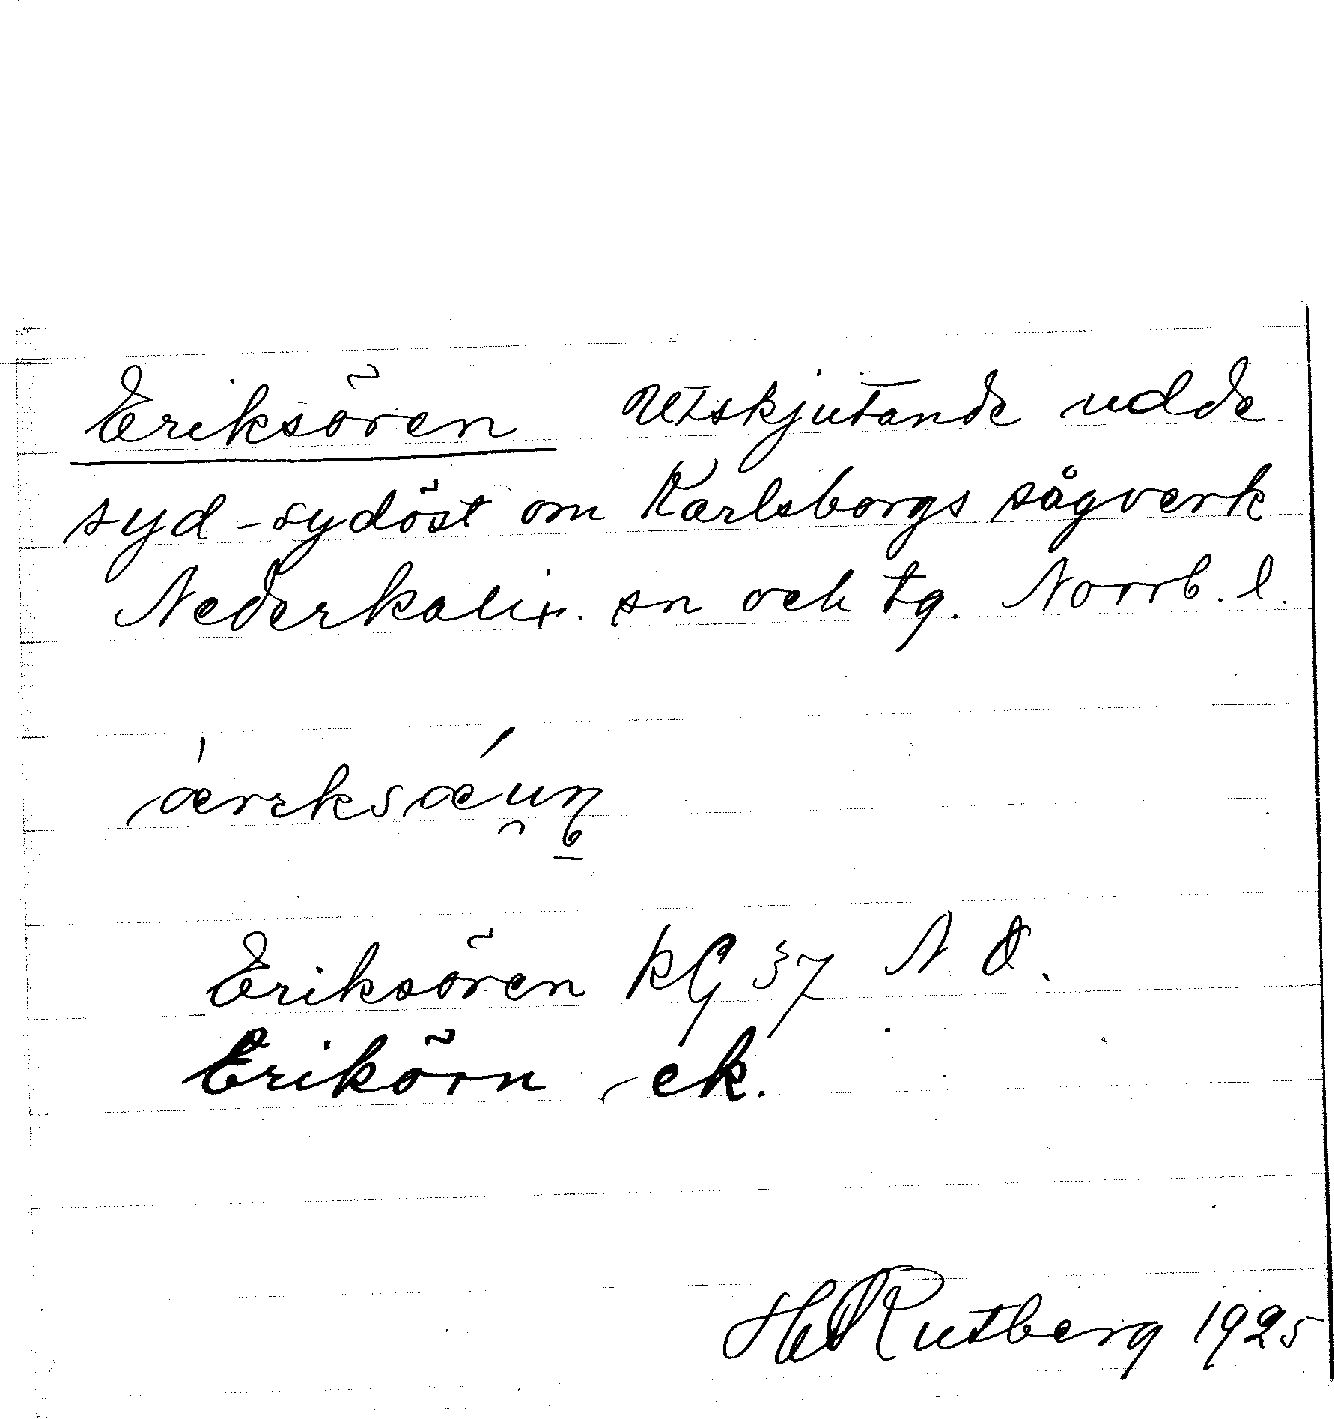 Eriksören Utskjutande udde
syd-sydöst om Karlsborgs sågverk
Nederkalix. sn och tg. Norrb. l.
Eriksören KG 37 N Ö.
Erikörn ek.
H Rutberg 1925